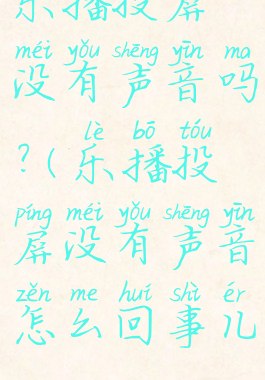 乐播投屏
méi yǒu shēng yīn ma
没有声音吗
lè bō tóu
?(乐播投
píng méi yǒu shēng yīn
屏没有声音
zěn me huí shì ér
怎么回事儿